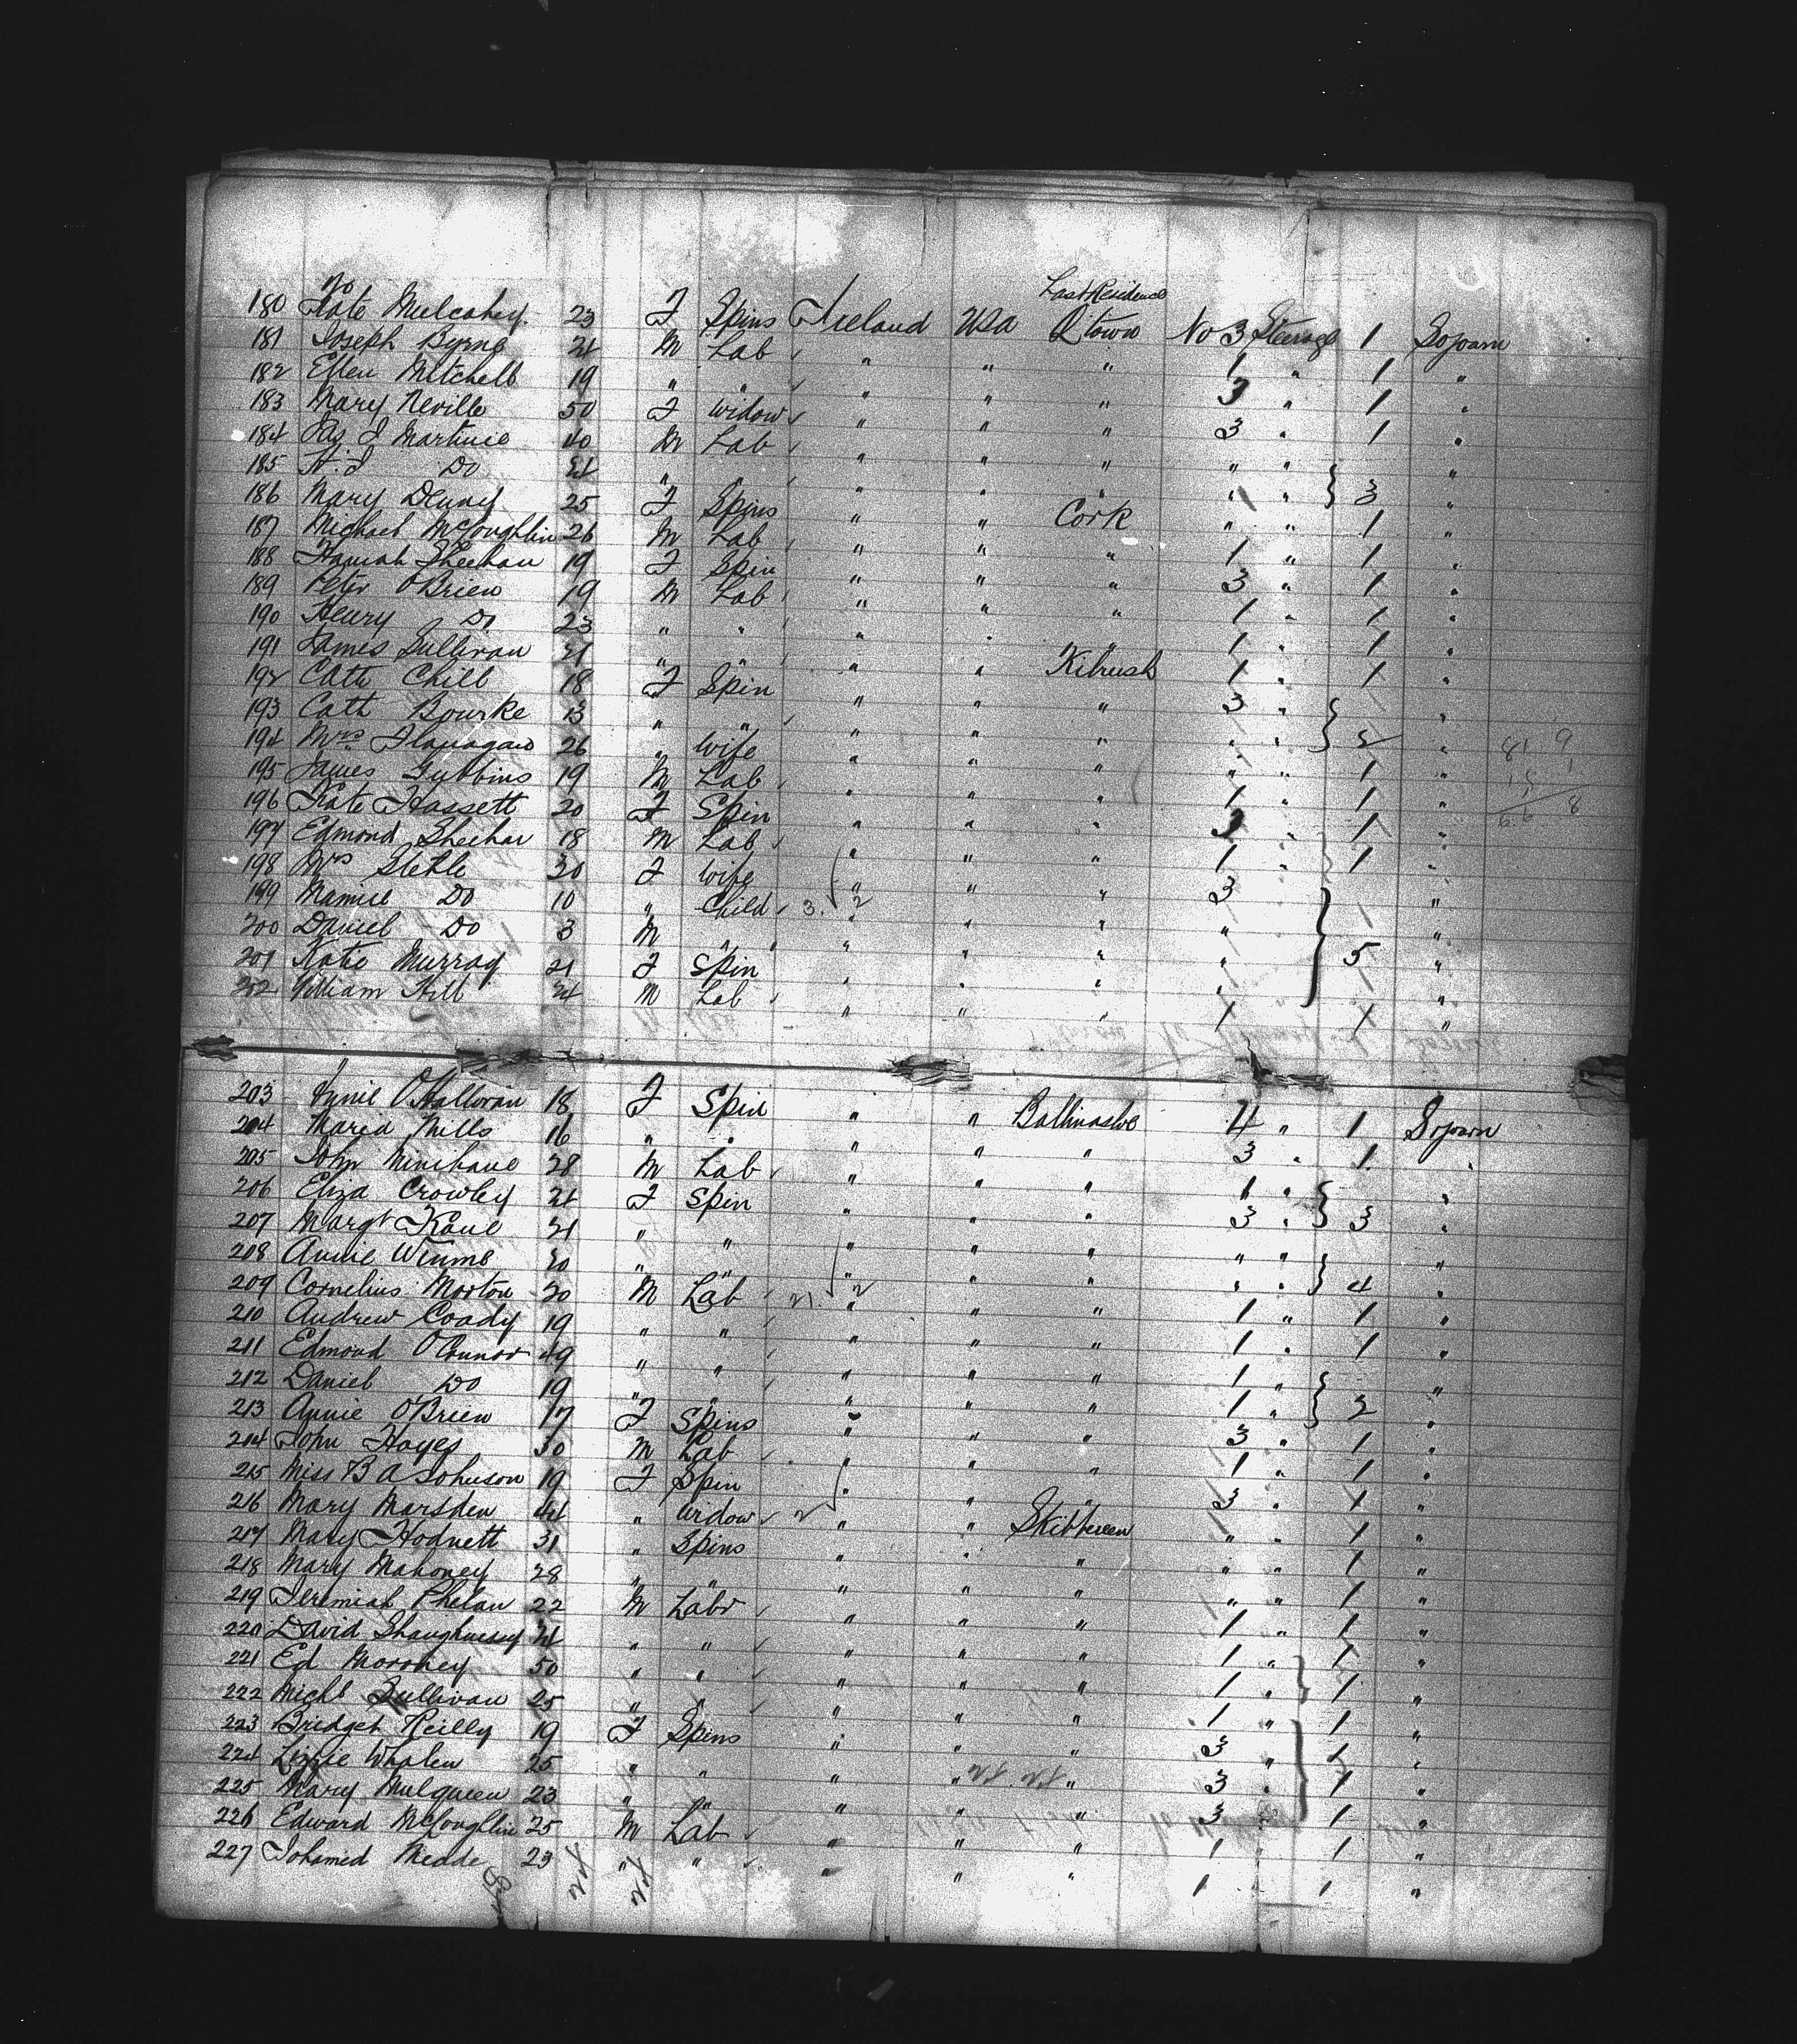 No
Last Residence
180 Kate Mulcahey 23 F Spins Ireland USA Qtown No 3 Steerage 1 Sojourn
181 Joseph Byrne 21 M Lab " " " 1 " 1 "
182 Ellen Mitchell 19 " " " " " 3 " 1 "
183 Mary Neville 50 F Widow " " " 3 " 1 "
184 Martinie 40 M Lab " " " " " "
185 Do 21 " " " " " " " 3 "
186 Mary Denny 25 F Spins " " Cork " " 1 "
187 Michael McLoughlin 26 M Lab " " " 1 " 1 "
188 Hanah Sheehan 19 F Spin " " " 3 " 1 "
189 Peter O'Brien 19 M Lab " " " 1 " 1 "
190 Henry Do 23 " " " " " 1 " 1 "
191 James Sullivan 21 " " " " Kilrush 1 " 1 "
192 Cath Chill 18 F Spin " " " 3 " "
193 Cath Bourke 13 " " " " " " " 2 "
194 Mrs Flanagan 26 " Wife " " " " " 1 "
195 James Gubbins 19 M Lab " " " 1 " 1 "
196 Kate Hassett 20 F Spin " " " 3 " 1 "
197 Edmond Sheehan 18 M Lab " " " 1 " 1 "
198 Mrs Steele 30 F Wife " " " 3 "
199 Mamie Do 10 " Child 3. 2 " " " " "
200 Daniel Do 3 M " " " " " 5 "
201 Katie Murray 21 F Spin " " " " "
202 William Hill 24 M Lab " " 1 1 "
203 Annie O'Halloran 18 F Spin " " Ballinasloe 4 " 1 Sojourn
204 Maria Mills 16 " " " " " 3 " 1 "
205 John Minihane 28 M Lab " " " 1 " "
206 Eliza Crowley 21 F Spin " " " 3 " 3 "
207 Margt Kane 21 " " " " " " " "
208 Annie 20 " " " " " " " 4 "
209 Cornelius Morton 20 M Lab 21. 2 " " " 1 " 1 "
210 Andrew Coady 19 " " " " " 1 " 1 "
211 Edmond O'Connor 49 " " " " " 1 " "
212 Daniel Do 19 " " " " " 1 " 2 "
213 Annie O'Brien 17 F Spins " " " 3 " 1 "
214 John Hayes 30 M Lab " " " 1 " 1 "
215 Miss B A Johnson 19 F Spin " " " 3 " 1 "
216 Mary Marsden 44 " Widow 2 " " Skibbereen " " 1 "
217 Mary Hodnett 31 " Spins " " " " " 1 "
218 Mary Mahoney 28 " " " " " " " 1 "
219 Jeremiah Phelan 22 M Labr " " " 1 " 1 "
220 David Shaughnessy 24 " " " " " 1 " 1 "
221 Ed Moroney 50 " " " " " 1 " 1 "
222 Michl Sullivan 25 " " " " " 1 " 1 "
223 Bridget Reilly 19 F Spins " " " 3 " 1 "
224 Lizzie Whalen 25 " " " " " 3 " 1 "
225 Mary Mulqueen 23 " " " " " 3 " 1 "
226 Edward McLoughlin 25 M Lab " " " 1 " 1 "
227 Meade 23 " " " " " 1 " 1 "